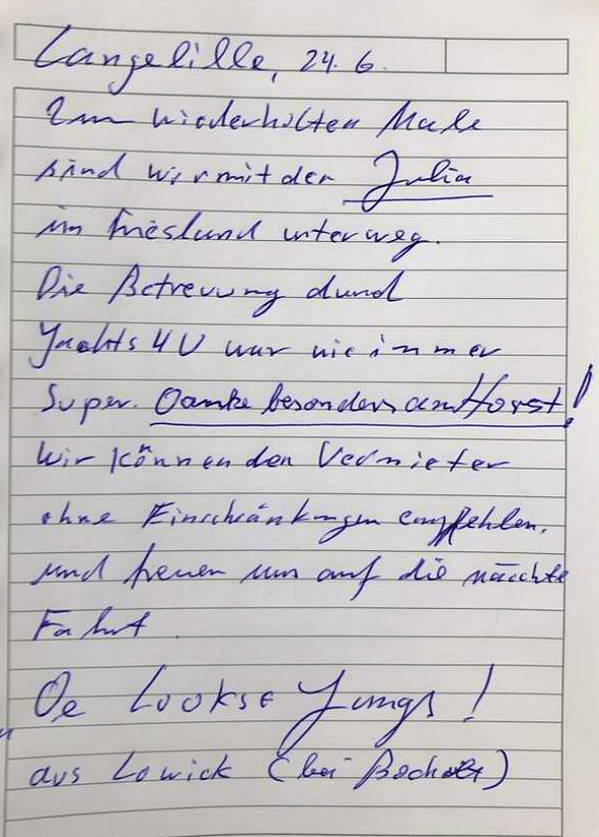 Langelille, 24. 6.
Zum wiederholten Male
sind wir mit der Julia
im Friesland unterweg.
Die Betreuung durch
Yachts 4U war wie immer
Super. Danke besonders an Horst!
Wir können den Vermieter
ohne Einschränkungen empfehlen.
und freuen uns auf die nächste
Fahrt.
De Lookse Jungs!
aus Lowick (bei Bocholt)